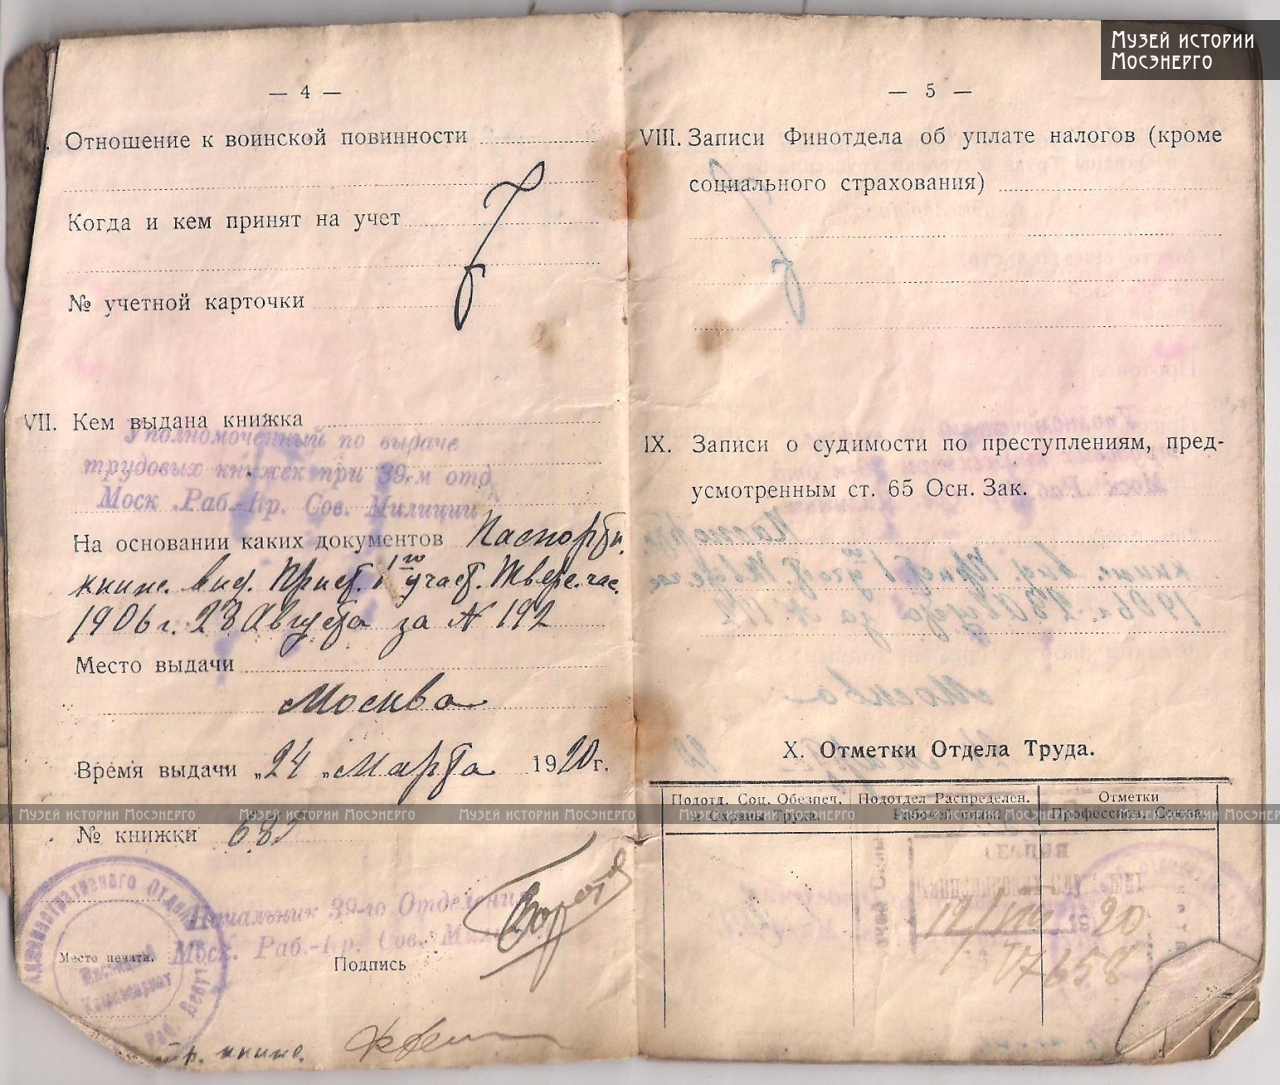 Музей истории
Мосэнерго
— 4 —
Отношение к воинской повинности
Когда и кем принят на учет
№ учетной карточки
VII. Кем выдана книжка
Уполномоченный по выдаче
трудовых книжек при 39-м отд
Моск. Раб.-Кр. Сов. Милиции
На основании каких документов Паспортн.
книж. выд. Прист. 1го участ. Тверс. час.
1906 г. 23 Августа за № 192
Место выдачи
Москва
Время выдачи „24 „ Марта 1920 г.
Музей истории Мосэнерго Музей истории Мосэнерго
№ книжки 682
Начальник 39-го Отделения
Моск. Раб.-Кр. Сов. Милиции
Место печати.
Подпись
книж.
— 5 —
VIII. Записи Финотдела об уплате налогов (кроме
социального страхования)
IX. Записи о судимости по преступлениям, пред-
усмотренным ст. 65 Осн. Зак.
X. Отметки Отдела Труда.
Подотд. Соц. Обеспеч.
и Охраны Труда.
Подотдел Распределен.
Рабочей силы
Отметки
Профессион. Союза.
Музей истории Мосэнерго Музей истории Мосэнерго
12/VIII 20
17658